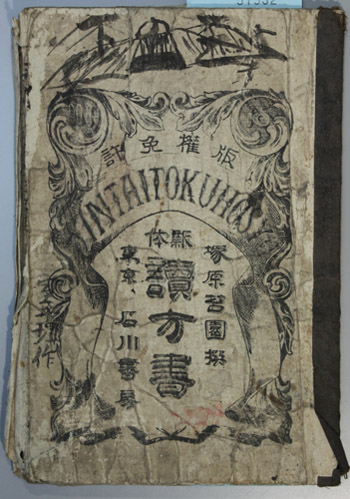 版權免許
INTAITOKUHOS
塚原苔園撰
新体
讀方書
東京、石川書房